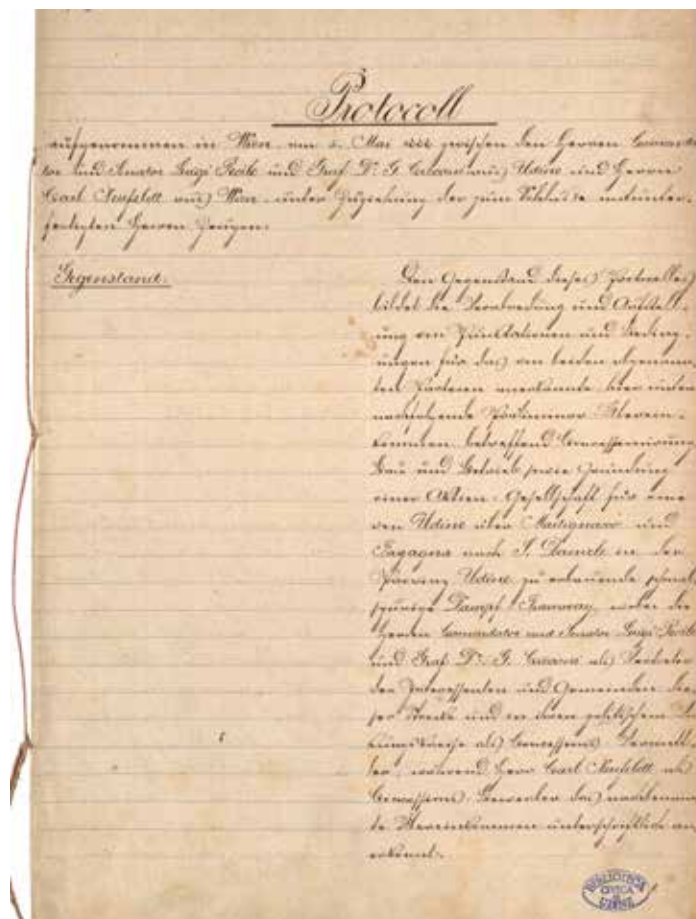 Protocoll
aufgenommen in Wien am 5. Mai 1886 zwischen den Herren Commanda-
tor und Senator Luigi Pecile und Graf Dr. G. Caisani aus Udine und Herrn
Carl Neufeldt aus Wien unter Zuziehung der zum Schlusse mitunter-
fertigten Herren Zeugen:
Gegenstand:
Den Gegenstand dieses Protocolles
bildet die Verabredung und Aufstell-
ung von Punktationen und Beding-
ungen für das von beiden obgenann-
ten Parteien anerkannte hier unten
nachfolgende Übereinkommen
betreffend Concessionirung
Bau und Betrieb sowie Gründung
einer Aktien-Gesellschaft für eine
von Udine über Martignacco und
Fagagna nach S. Daniele in der
Provinz Udine zu erbauende schmal-
spurige Dampf-Tramway, wobei die
Herren Commandator und Senator Luigi Pecile
und Graf Dr. G. als Vertreter
der Interessenten und Gemeinden die-
ser Strecke und in deren politischem
als Concessions-Vermitt-
ler, während Herr Carl Neufeldt als
Concessions-Bewerber das nachbenann-
te Übereinkommen unterschriftlich an-
erkennt.
BIBLIOTECA
CIVICA
UDINE